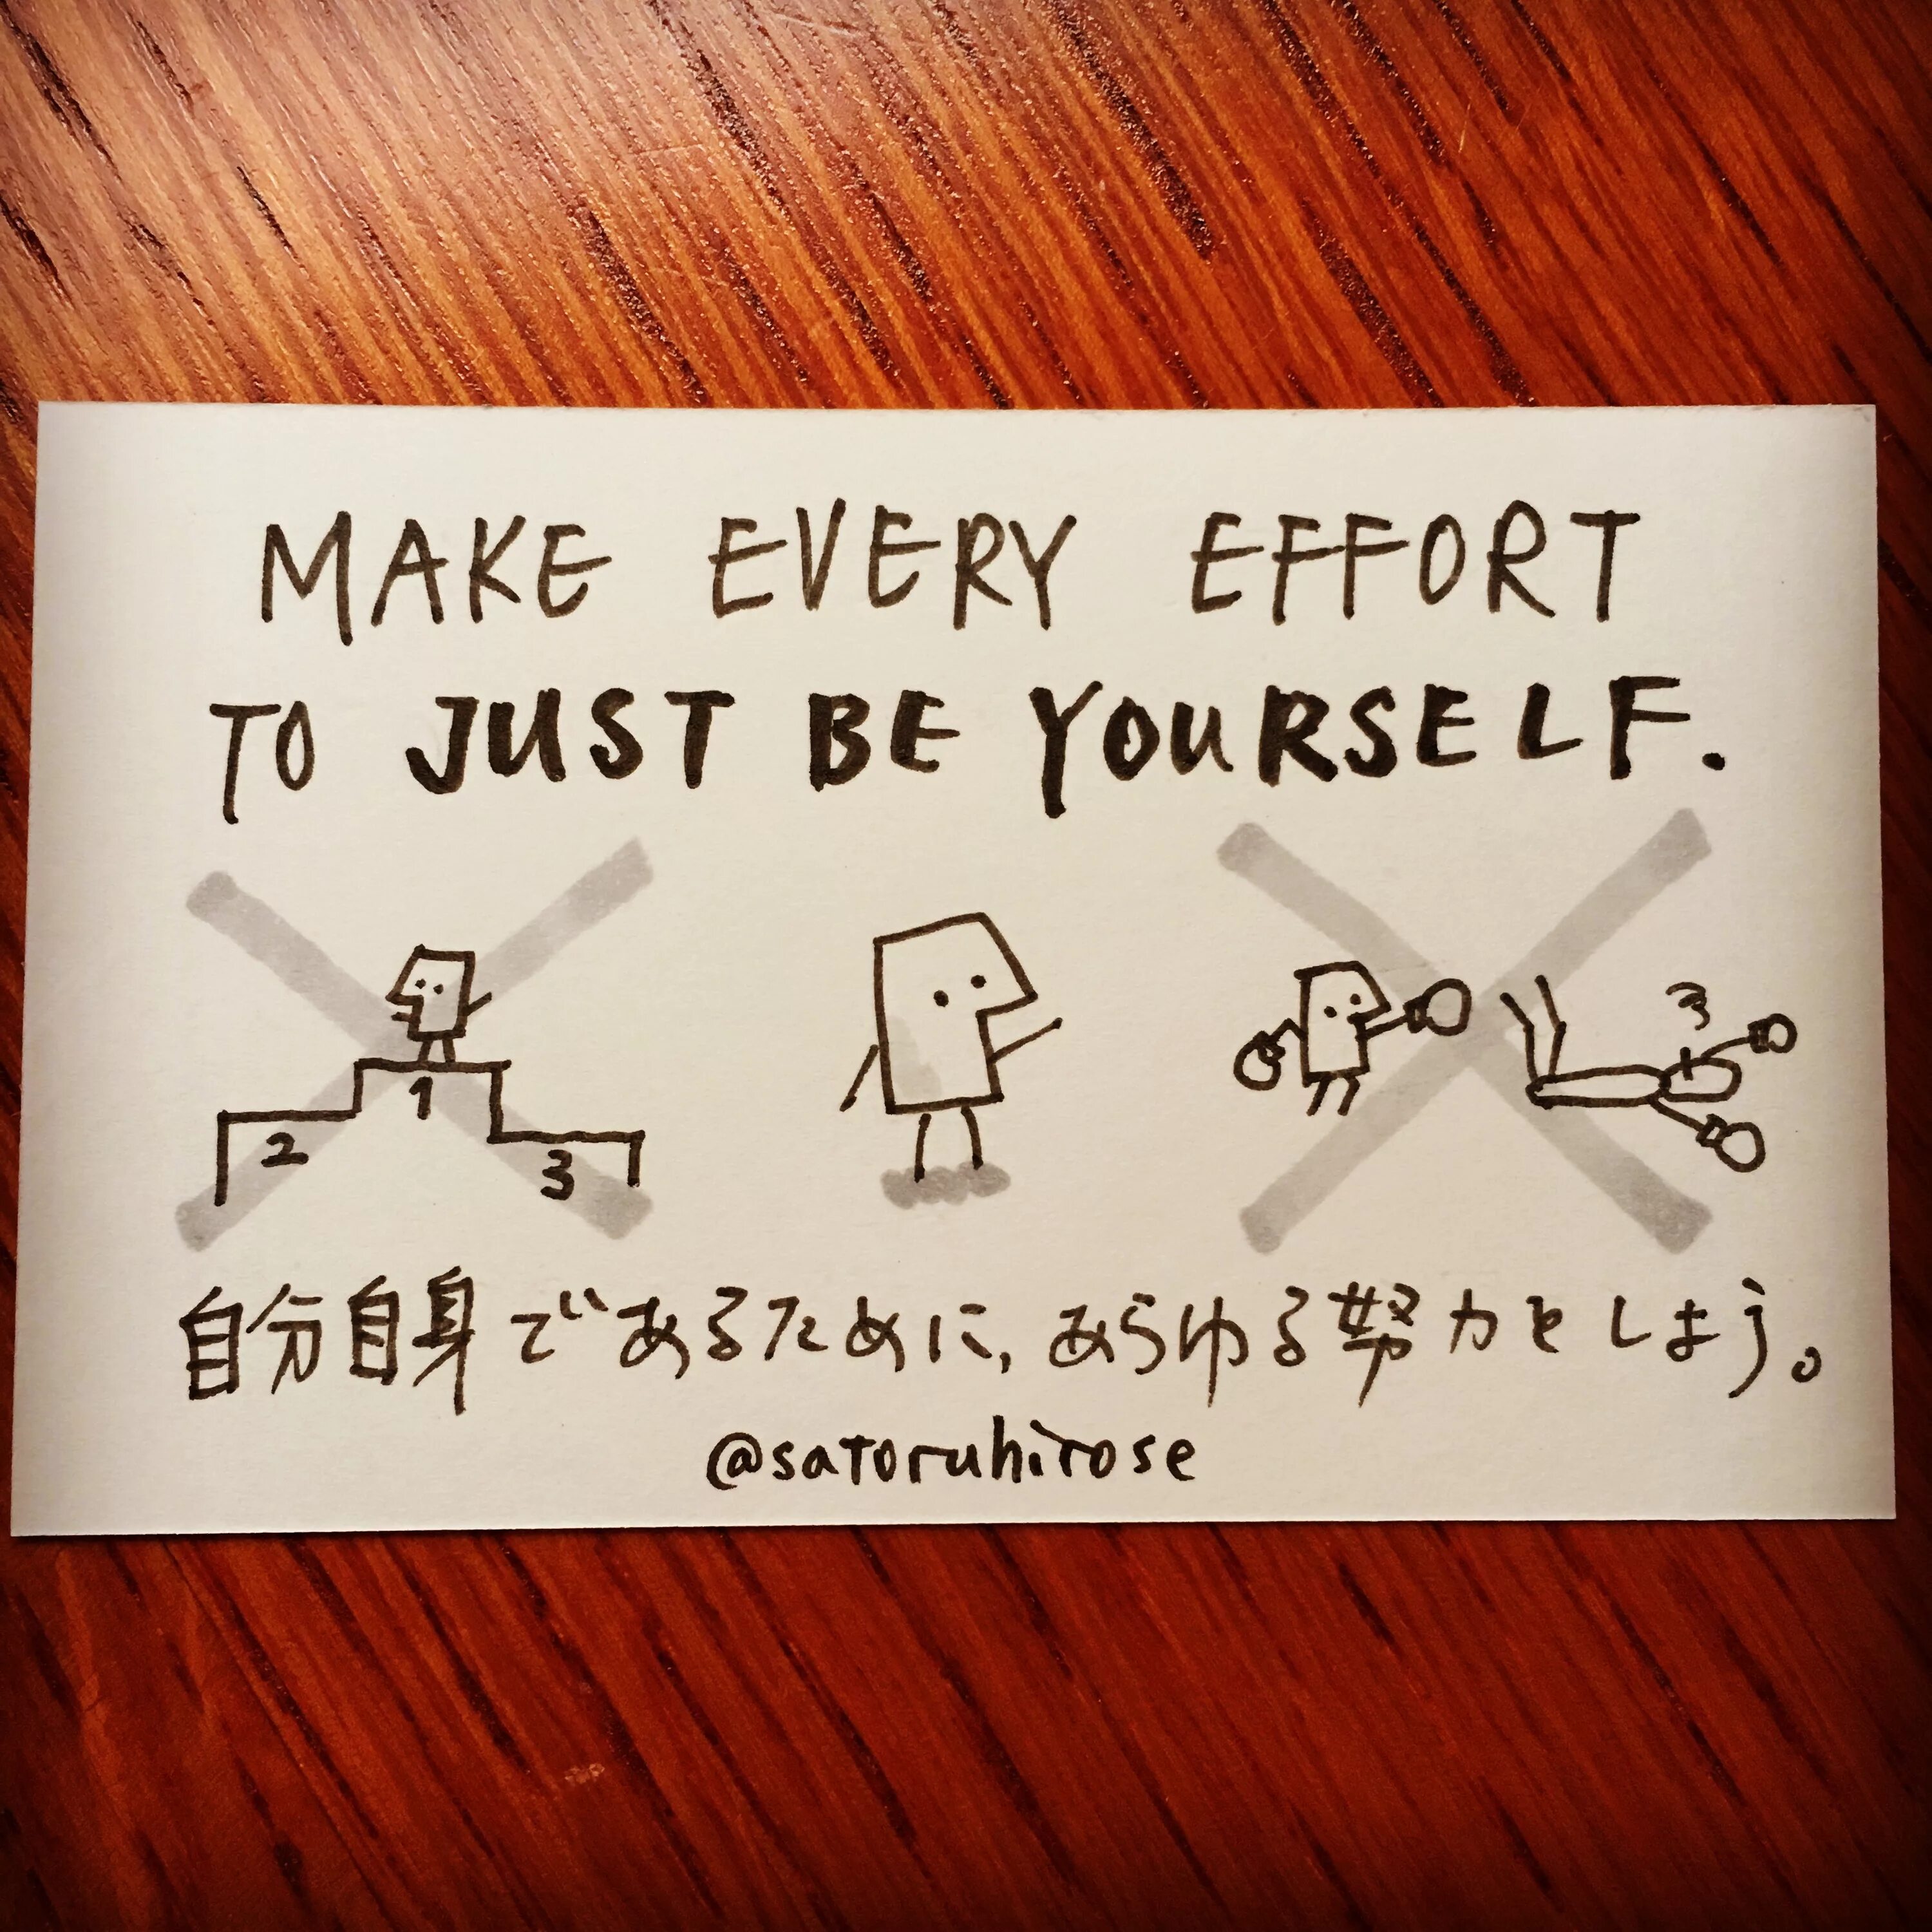 MAKE EVERY EFFORT
TO JUST BE YOURSELF.
1
2
3
自分自身であるために、あらゆる努力をしよう。
@satoruhirose